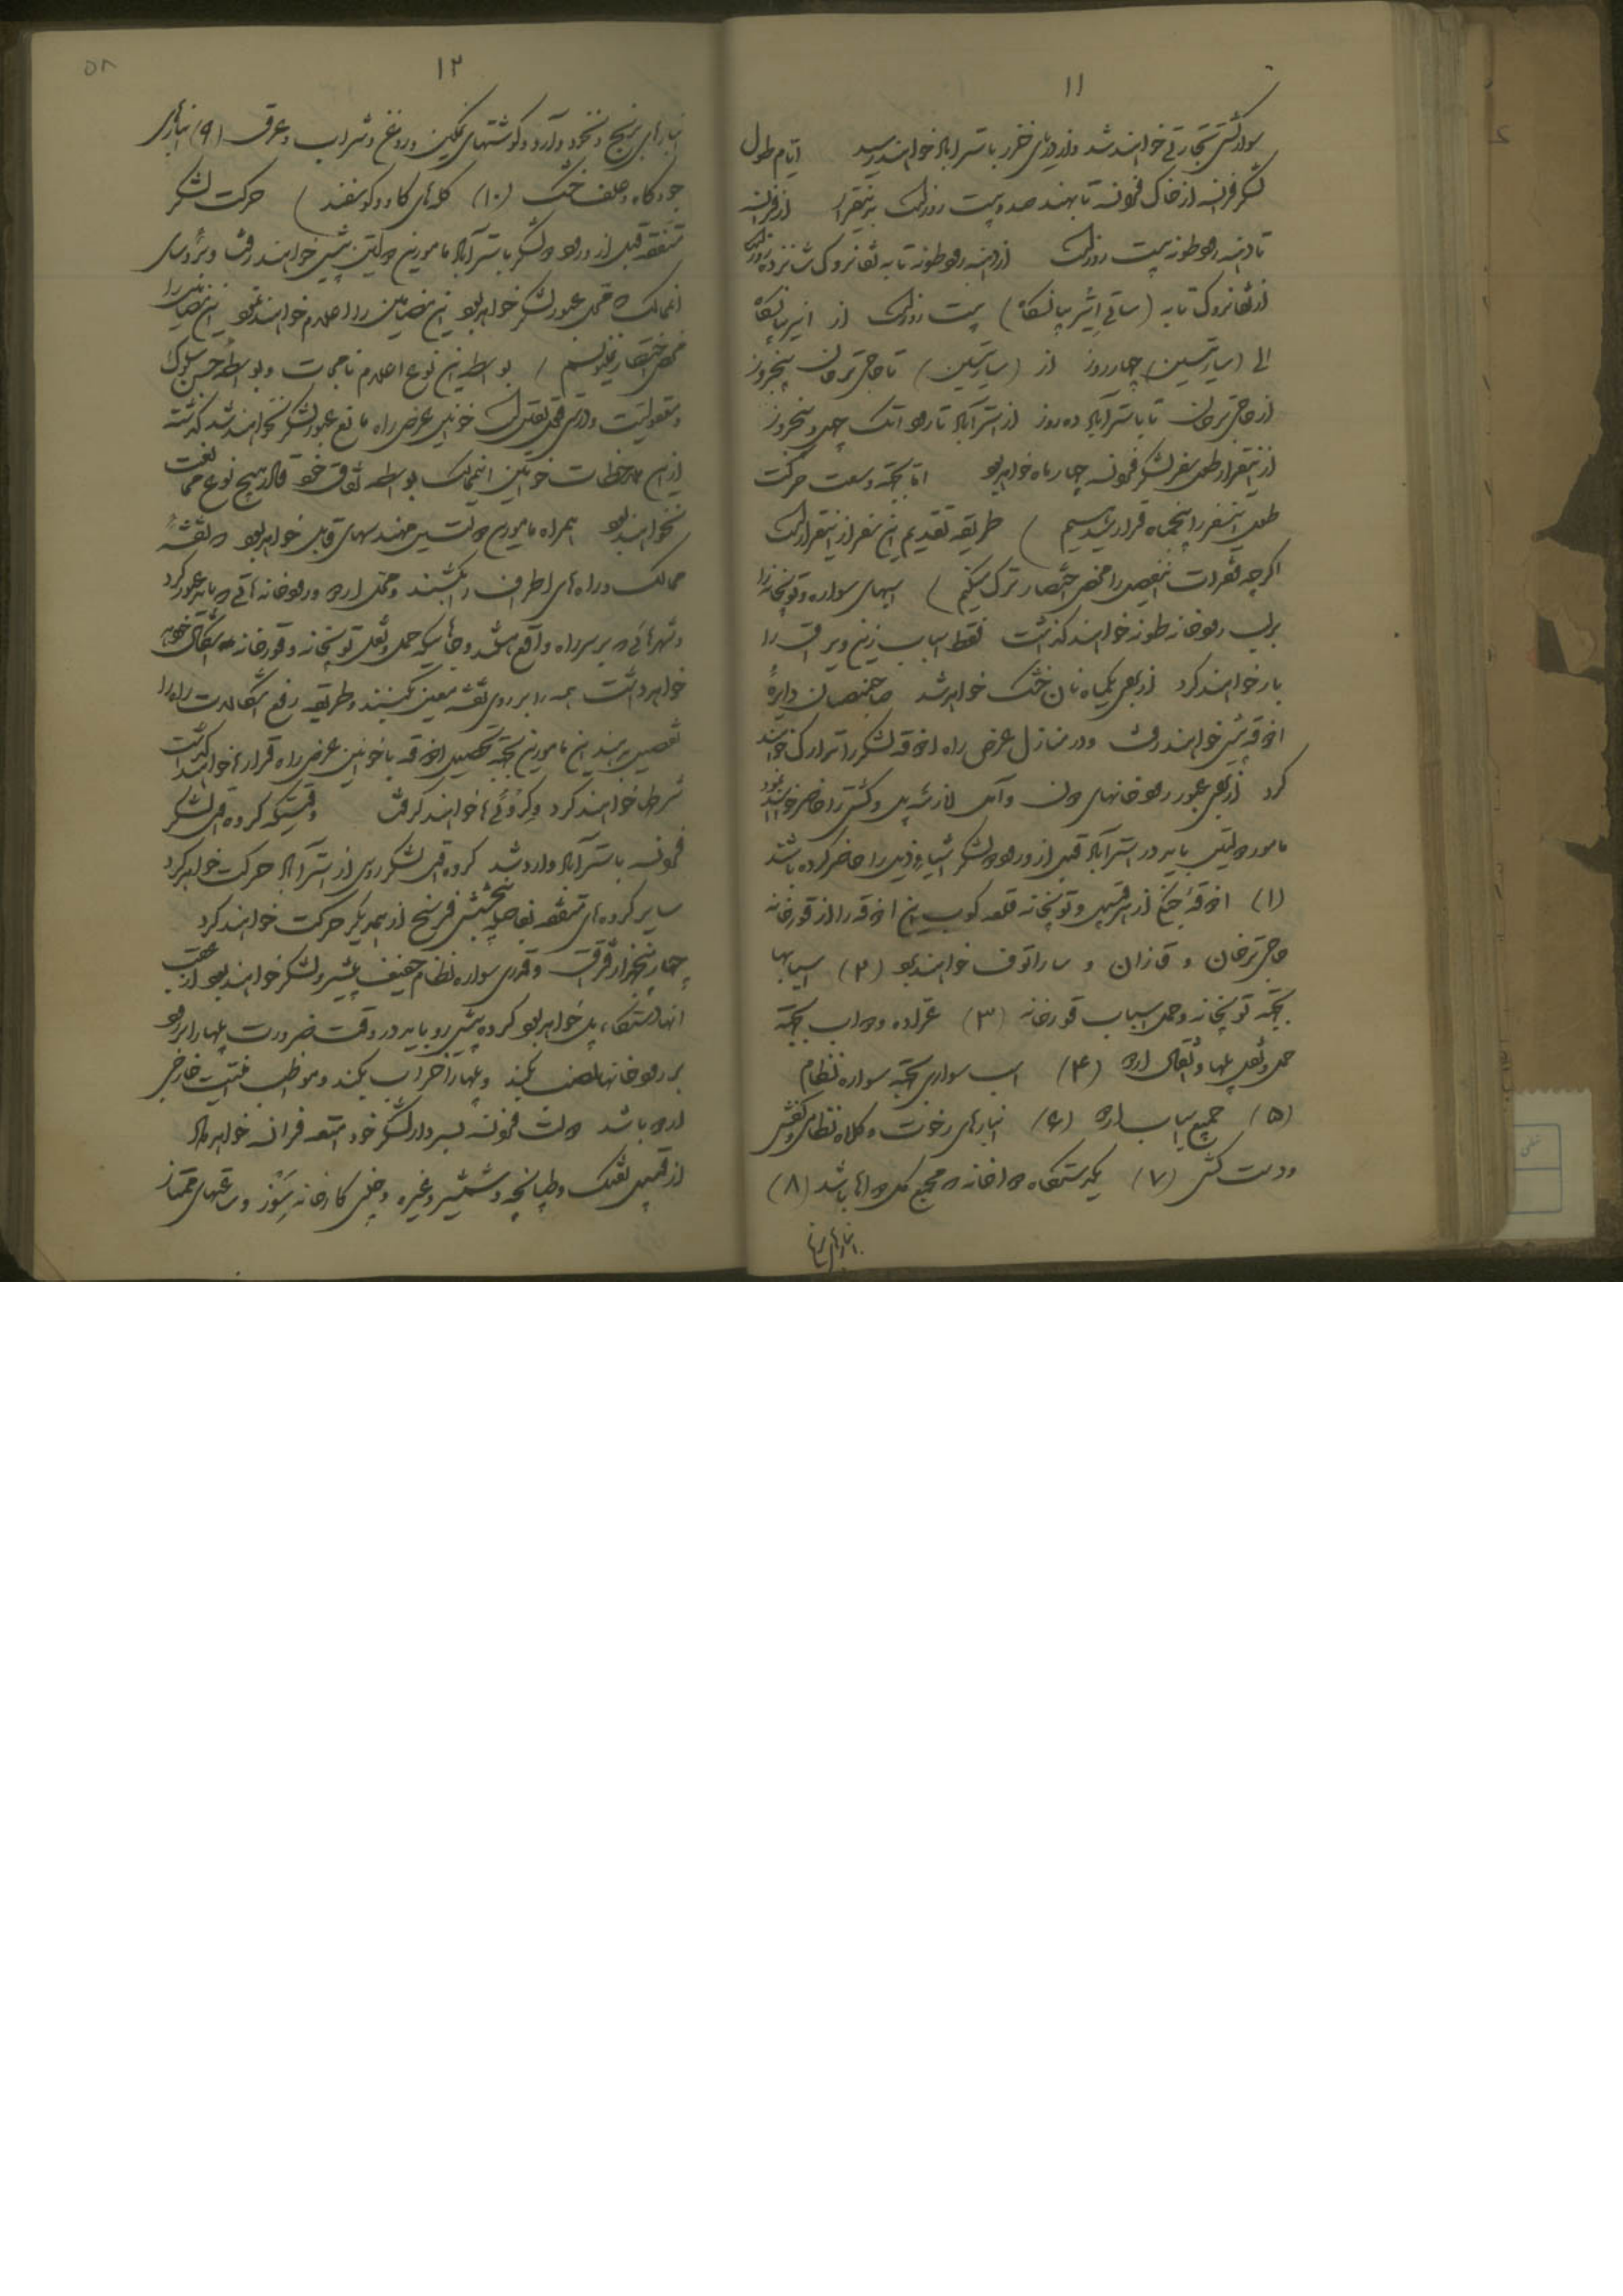 ۱۱
سوار کشتی تجارتی خواهند شد و از دریای خزر باسترآباد خواهند رسید ایام طول
لشکر فرانسه از خاک فرانسه تا بهند صد و بیست روز است بدینقرار از فرانسه
تا دهنه رودطونه بیست روز است از دهنه رودطونه تا به تغانروک شانزده روز است
از تغانروک تا به (ساقی ایشریانسکاه) بیست روز است از ایزبیانسکاه
الی (سیارتسین) چهار روز از (سیارتسین) تا حاجی ترخان پنجروز
از حاجی ترخان تا باسترآباد ده روز از استرآباد تا رود اتک چهل و پنجروز
از اینقرار طول سفر لشکر فرانسه چهار ماه خواهد بود اما بجهة وسعت حرکت
طول این سفر را پنجماه قرار میدهیم ) طریقه تقدیم این سفر از اینقرار است
اگرچه فقرات تفصیل را محض اختصار ترک میکنیم ) اسبهای سواره و توپخانه را
بر لب رودخانه طونه خواهند گذاشت فقط اسباب زین و یراق را
بار خواهند کرد از برای یکماه نان خشک خواهد شد صاحبمنصبان دایرهٔ
اذوقه پیش خواهند رفت و در منازل عرض راه اذوقه لشکر را تدارک خواهند
کرد از برای عبور رودخانهای دن و آمل لازمه پل و کشتی را حاضر خواهند نمود
مامور دولتین باید در استرآباد قبل از ورود لشکر اشیاء ذیل را حاضر کرده باشند
(۱) اذوقهٔ جنگ از هر قبیل و توپخانه قلعه کوب این اذوقه را از قورخانه
حاجی ترخان و قازان و ساراتوف خواهند بود (۲) اسبها
بجهة توپخانه و حمل اسباب قورخانه (۳) عراده و دواب بجهة
حمل و نقل پلها و اثقال اردو (۴) اسب سواری بجهة سواره نظام
(۵) جمیع اسباب اردو (۶) انبارهای رخوت و کلاه نظامی و کفش
و دست کش (۷) یکدستگاه دواخانه که مجمع کل دواها باشد (۸)
انبارهای برنج
۱۲
۵۸
انبارهای برنج و نخود و آرد و گوشتهای نمکین و روغن و شراب و عرق (۹) انبارهای
جو و کاه و علف خشک (۱۰) گله‌های گاو و گوسفند ) حرکت لشکر
متفقه قبل از ورود لشکر باسترآباد مامورین دولتین پیش خواهند رفت و برؤسای
انممالک که محل عبور لشکر خواهد بود این مضامین را اعلام خواهند نمود این مضامین را
محض اختصار نمینویسیم ) بواسطه این نوع اعلام‌نامجات و بواسطهٔ حسن سلوک
و معقولیت و درستی نقل است خوانین عرض راه مانع عبور لشکر نخواهند شد گذشته
از این ملاحظات خوانین انممالک بواسطه نفاق خود قادر بهیچ نوع ممانعت
نخواهند بود همراه مامورین دولتین مهندسهای قابل خواهد بود که نقشه
ممالک و راه‌های اطراف را بکشند و محل اردو و رودخانه‌هائی که باید عبور کرد
و شهرهائی که بر سر راه واقع میشود و جاهائیکه حمل و نقل توپخانه و قورخانه اشکال خواهد
خواهد داشت همه را بر روی نقشه معین کنند و طریقه رفع اشکالات راه را
تفصیل بدهند این مامورین بجهة تحصیل اذوقه با خوانین عرض راه قرارها خواهند گذاشت
شرط خواهند کرد و گروئی‌ها خواهند گرفت وقتیکه گروه اول لشکر
فرانسه باسترآباد وارد شد گروه اول لشکر روس از استرآباد حرکت خواهد کرد
سایر گروه‌های متفقه بفاصله پنج شش فرسخ از همدیگر حرکت خواهند کرد
چهار پنجهزار قزاق و قدری سواره نظام خفیف پیشرو لشکر خواهند بود از عقب
آنها دستگاه پل خواهد بود گروه پیش رو باید در وقت ضرورت پلها را بر رو
بر رودخانها نصب بکند و پلها را خراب بکند و مواظب امنیت خارجی
اردو باشد دولت فرانسه بسردار لشکر خود امتعه فرانسه خواهد داد
از قبیل تفنگ و طپانچه و شمشیر و غیره و چینی کارخانه سَوْر و ساعتهای ممتاز